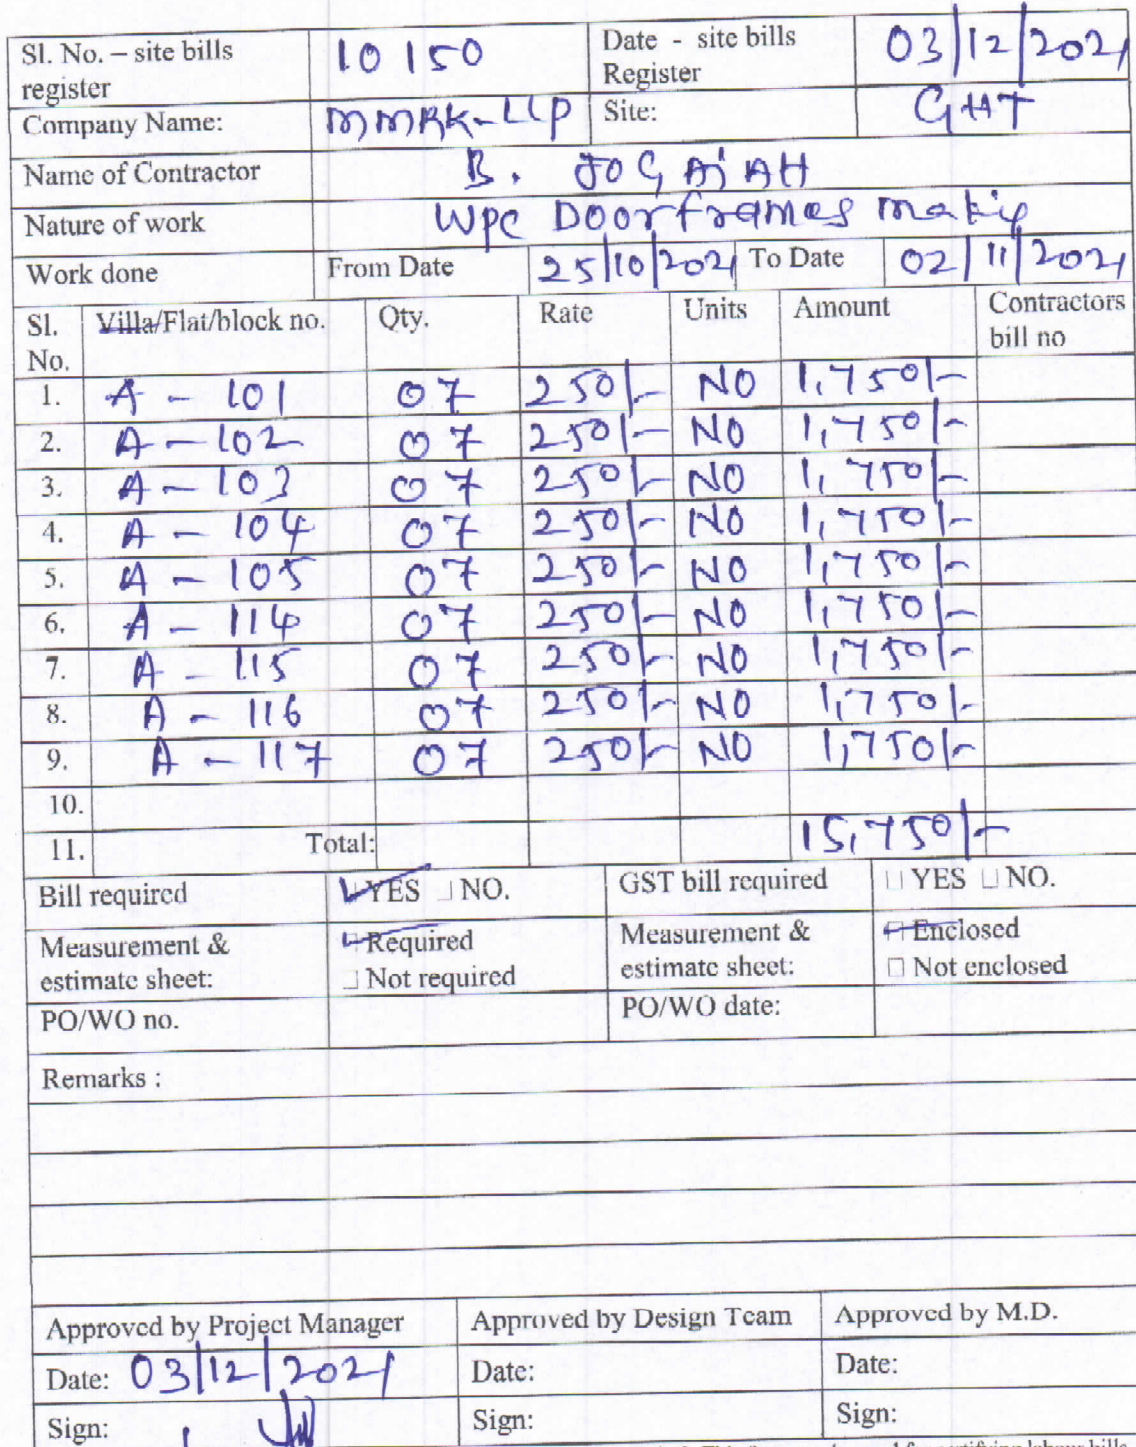 Sl. No. – site bills register 10150 Date - site bills Register 03/12/2021
Company Name: MMRK-LLP Site: GHT
Name of Contractor B. JOGAiAH
Nature of work WPC Doorframes making
Work done From Date 25/10/2021 To Date 02/11/2021
Sl. No. Villa/Flat/block no. Qty. Rate Units Amount Contractors bill no
1. A - 101 07 250/- NO 1,750/-
2. A - 102 07 250/- NO 1,750/-
3. A - 103 07 250/- NO 1,750/-
4. A - 104 07 250/- NO 1,750/-
5. A - 105 07 250/- NO 1,750/-
6. A - 114 07 250/- NO 1,750/-
7. A - 115 07 250/- NO 1,750/-
8. A - 116 07 250/- NO 1,750/-
9. A - 117 07 250/- NO 1,750/-
10.
11. Total: 15,750/-
Bill required YES NO. GST bill required YES NO.
Measurement & estimate sheet: Required Not required Measurement & estimate sheet: Enclosed Not enclosed
PO/WO no. PO/WO date:
Remarks :
Approved by Project Manager Approved by Design Team Approved by M.D.
Date: 03/12/2021 Date: Date:
Sign: Sign: Sign: